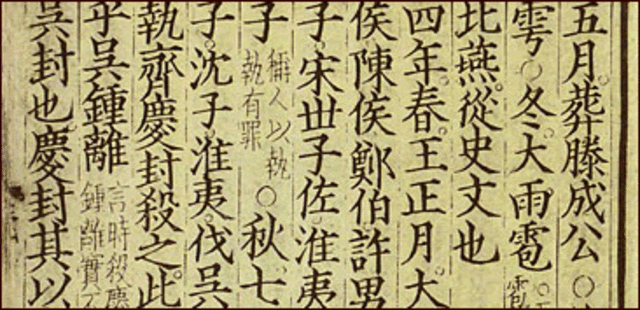 五月葬滕成公○
雩○冬大雨雹
北燕從史文也
四年春王正月大
侯陳侯鄭伯許男
子宋世子佐淮夷
子稱人以執執有罪○秋七
子沈子淮夷伐吳
執齊慶封殺之此
乎吳鍾離言時殺慶鍾離實不
吳封也慶封其以